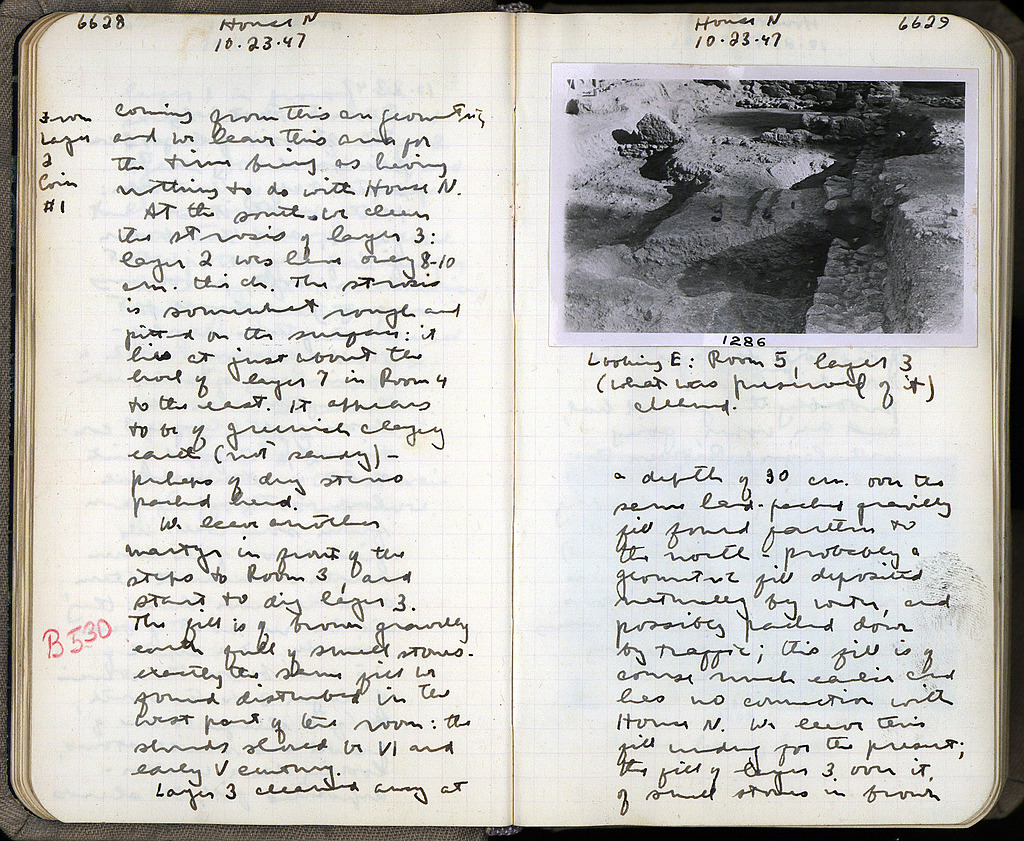 6628
House N
10.23.47
From
Layer
2
Coin
#1
coming from this are geometric,
and we leave this area for
the time being as having
nothing to do with House N.
At the south we clean
the strosis of layer 3:
layer 2 was here only 8-10
cm. thick. The strosis
is somewhat rough and
pitted on the surface: it
lies at just about the
level of layer 7 in Room 4
to the east. It appears
to be of greenish clayey
earth (not sandy) -
perhaps of dug stereo
packed hard.
We leave another
martyr in front of the
steps to Room 3, and
start to dig layer 3.
The fill is of brown gravelly
earth full of small stones.
exactly the same fill we
found disturbed in the
west part of the room: the
sherds should be VI and
early V century.
B530
Layer 3 cleaned away at
House N
10.23.47
6629
1286
Looking E: Room 5, layer 3
(what was preserved of it)
cleaned.
a depth of 30 cm. over the
same hard-packed gravelly
fill found farther to
the north - probably a
geometric fill deposited
naturally by water, and
possibly packed down
by traffic; this fill is of
course much earlier and
has no connection with
House N. We leave this
fill undug for the present;
the fill of layer 3 over it,
of small stones in brown